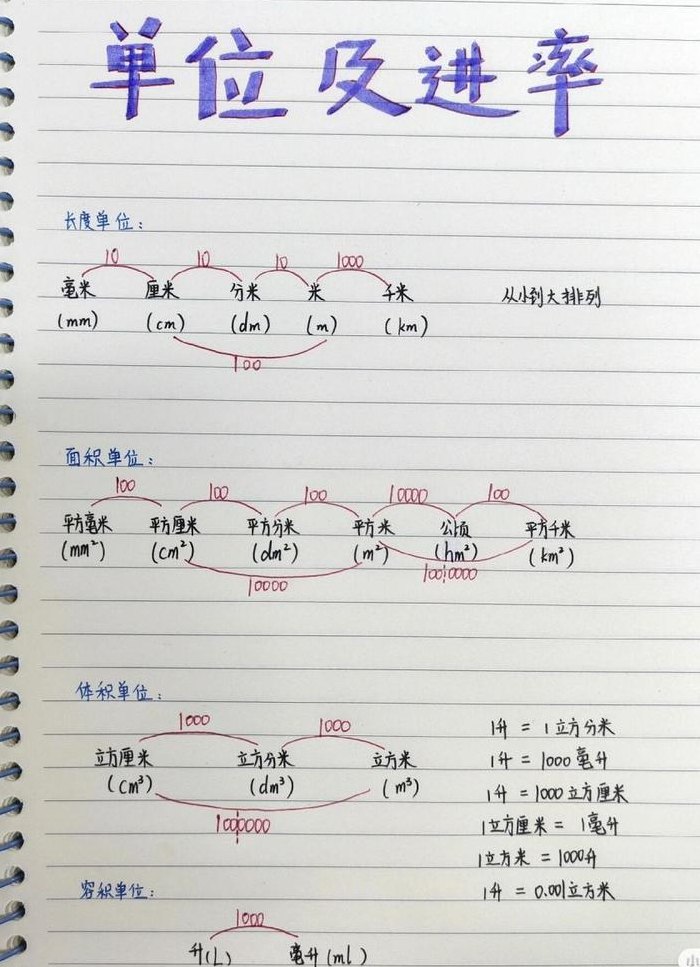 单位及进率
长度单位:
10 10 10 1000
毫米 厘米 分米 米 千米 从小到大排列
(mm) (cm) (dm) (m) (km)
100
面积单位:
100 100 100 10000 100
平方毫米 平方厘米 平方分米 平方米 公顷 平方千米
(mm²) (cm²) (dm²) (m²) (hm²) (km²)
10000 1000000
体积单位:
1000 1000
立方厘米 立方分米 立方米
(cm³) (dm³) (m³)
1000000
1升 = 1立方分米
1升 = 1000毫升
1升 = 1000立方厘米
1立方厘米 = 1毫升
1立方米 = 1000升
1升 = 0.001立方米
容积单位:
1000
升(L) 毫升(ml)
小